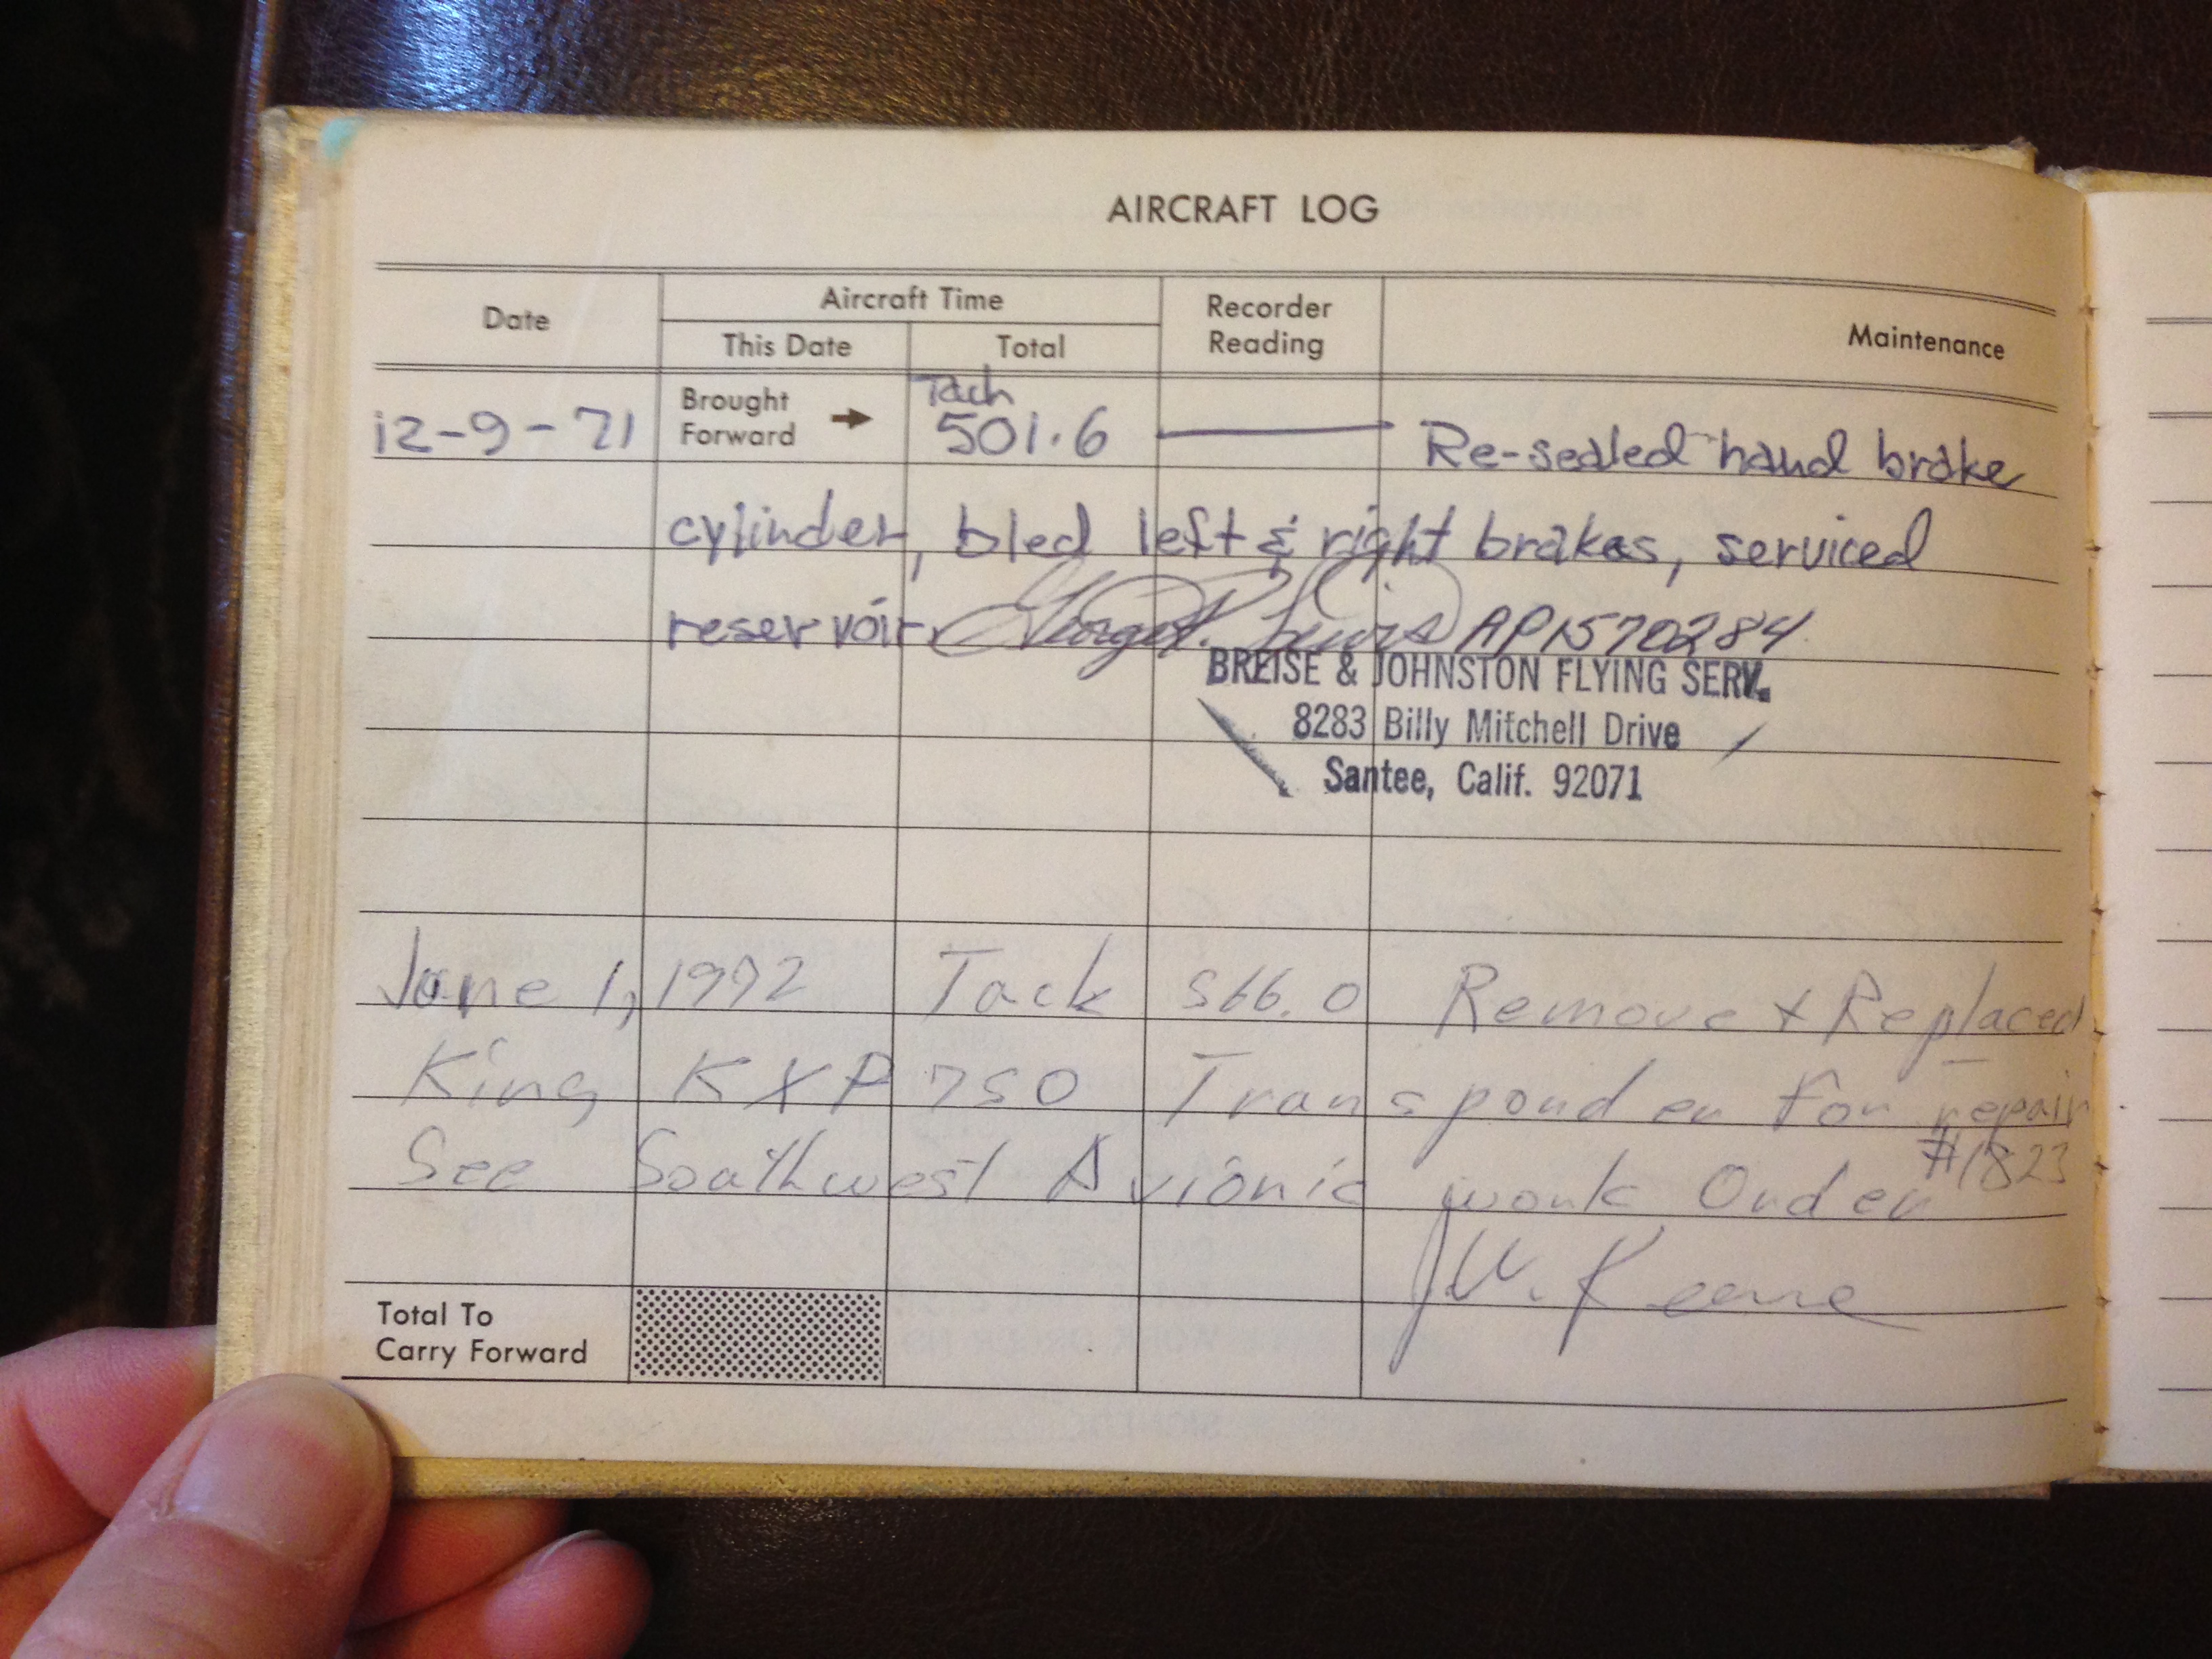 AIRCRAFT LOG
Date Aircraft Time Recorder Reading Maintenance
This Date Total
Brought Forward → Tach
12-9-71 501.6 Re-sealed hand brake
cylinder, bled left & right brakes, serviced
reservoir. George Lewis AP1570284
BREISE & JOHNSTON FLYING SERV.
8283 Billy Mitchell Drive
Santee, Calif. 92071
June 1, 1972 Tack 566.0 Remove & Replaced
King KXP 750 Transponder for repair
See Southwest Avionic work Order #1823
J.W. Keene
Total To
Carry Forward